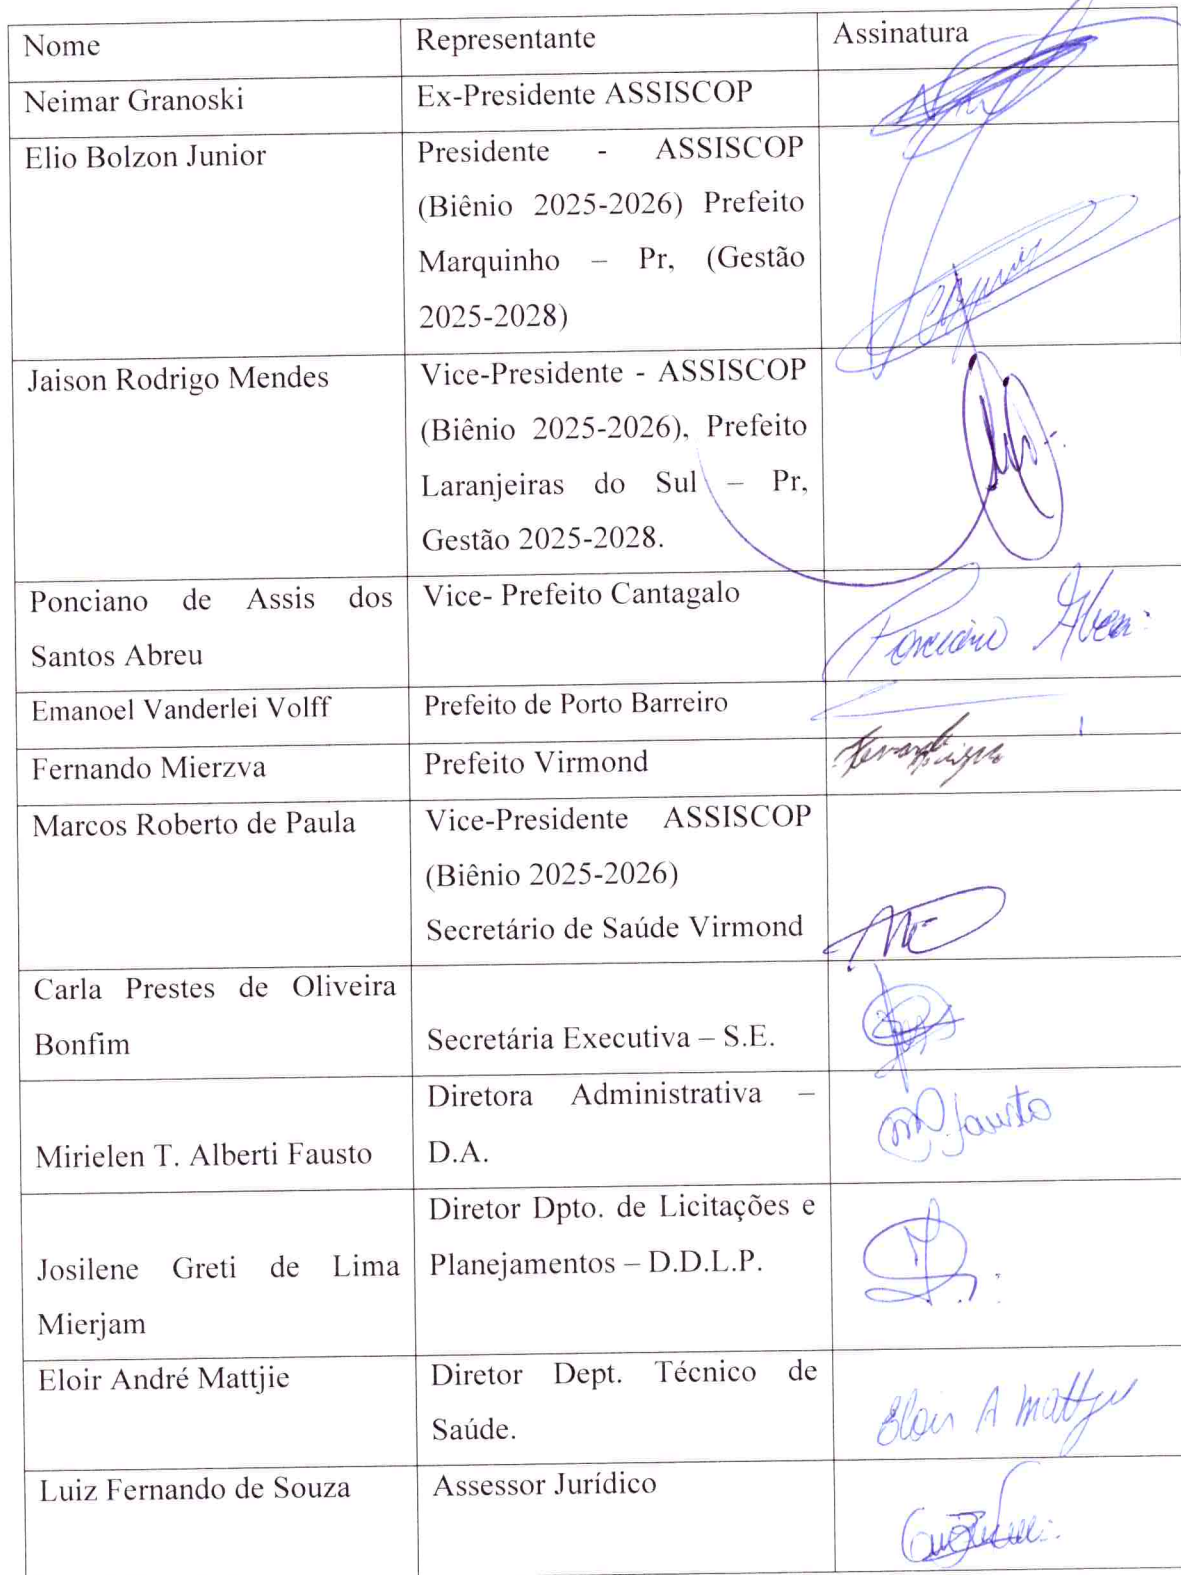 Nome Representante Assinatura
Neimar Granoski Ex-Presidente ASSISCOP
Elio Bolzon Junior Presidente - ASSISCOP
(Biênio 2025-2026) Prefeito
Marquinho – Pr, (Gestão
2025-2028)
Jaison Rodrigo Mendes Vice-Presidente - ASSISCOP
(Biênio 2025-2026), Prefeito
Laranjeiras do Sul – Pr,
Gestão 2025-2028.
Ponciano de Assis dos Vice- Prefeito Cantagalo
Santos Abreu
Ponciano Abreu
Emanoel Vanderlei Volff Prefeito de Porto Barreiro
Fernando Mierzva Prefeito Virmond
Marcos Roberto de Paula Vice-Presidente ASSISCOP
(Biênio 2025-2026)
Secretário de Saúde Virmond
Carla Prestes de Oliveira
Bonfim Secretária Executiva – S.E.
Diretora Administrativa –
Mirielen T. Alberti Fausto D.A.
M. Fausto
Diretor Dpto. de Licitações e
Josilene Greti de Lima Planejamentos – D.D.L.P.
Mierjam
Eloir André Mattjie Diretor Dept. Técnico de
Saúde.
Eloir A Mattjie
Luiz Fernando de Souza Assessor Jurídico